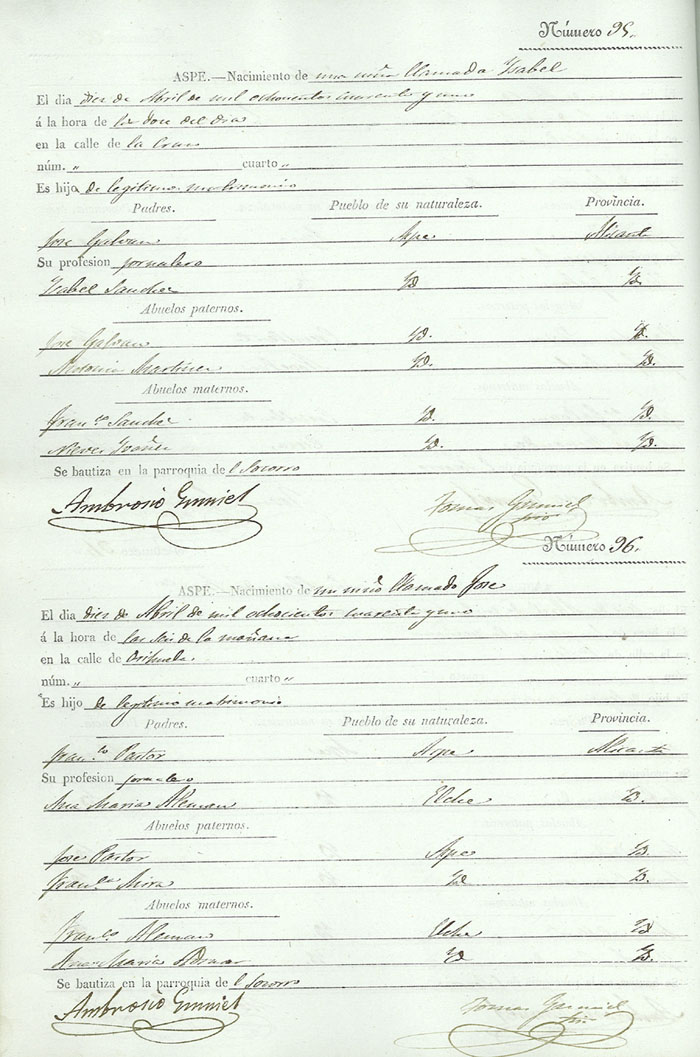 Número 95.
ASPE.—Nacimiento de una niña llamada Ysabel
El dia diez de Abril de mil ochocientos cuarenta y uno
á la hora de las doce del dia
en la calle de la Cruz
núm. „ cuarto „
Es hija de legitimo matrimonio
Padres. Pueblo de su naturaleza. Provincia.
Jose Galvan Aspe Alicante
Su profesion jornalero
Ysabel Sanchez Yd. Yd.
Abuelos paternos.
Jose Galvan Yd. Yd.
Antonia Martinez Yd. Yd.
Abuelos maternos.
Franco. Sanchez Yd. Yd.
Nieves Yd. Yd.
Se bautiza en la parroquia del Socorro
Ambrosio Gumiel Tomas Gumiel
Número 96.
ASPE.—Nacimiento de un niño llamado Jose
El dia diez de Abril de mil ochocientos cuarenta y uno
á la hora de las seis de la mañana
en la calle de Orihuela.
núm. „ cuarto „
Es hijo de legitimo matrimonio
Padres. Pueblo de su naturaleza. Provincia.
Franco. Pastor Aspe Alicante
Su profesion jornalero
Ana Maria Aleman Elche Yd.
Abuelos paternos.
Jose Pastor Aspe Yd.
Franca. Mira Yd. Yd.
Abuelos maternos.
Franco. Aleman Elche Yd.
Ana Maria Yd. Yd.
Se bautiza en la parroquia del Socorro
Ambrosio Gumiel Tomas Gumiel